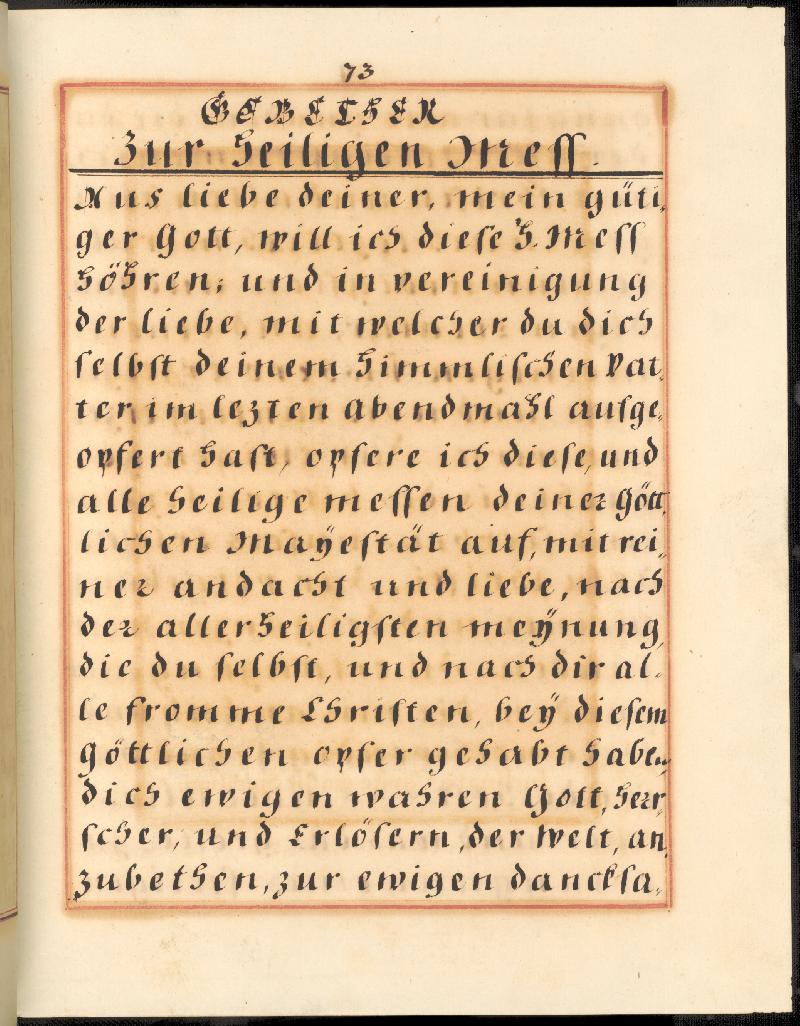 73
GEBETHER
Zur Heiligen Mess.
Aus liebe deiner, mein güti,
ger Gott, will ich diese H. Mess
höhren, und in vereinigung
der liebe, mit welcher du dich
selbst deinem himmlischen Vat,
ter, im lezten Abendmahl aufge,
opfert hast, opfere ich diese, und
alle heilige messen deiner Gött,
lichen Mayestät auf, mit rei,
ner andacht und liebe, nach
der allerheiligsten meÿnung,
die du selbst, und nach dir al,
le fromme Christen, beÿ diesem
göttlichen opfer gehabt haben,
dich ewigen wahren Gott, herr,
scher, und Erlösern, der Welt, an,
zubethen, zur ewigen dancksa,